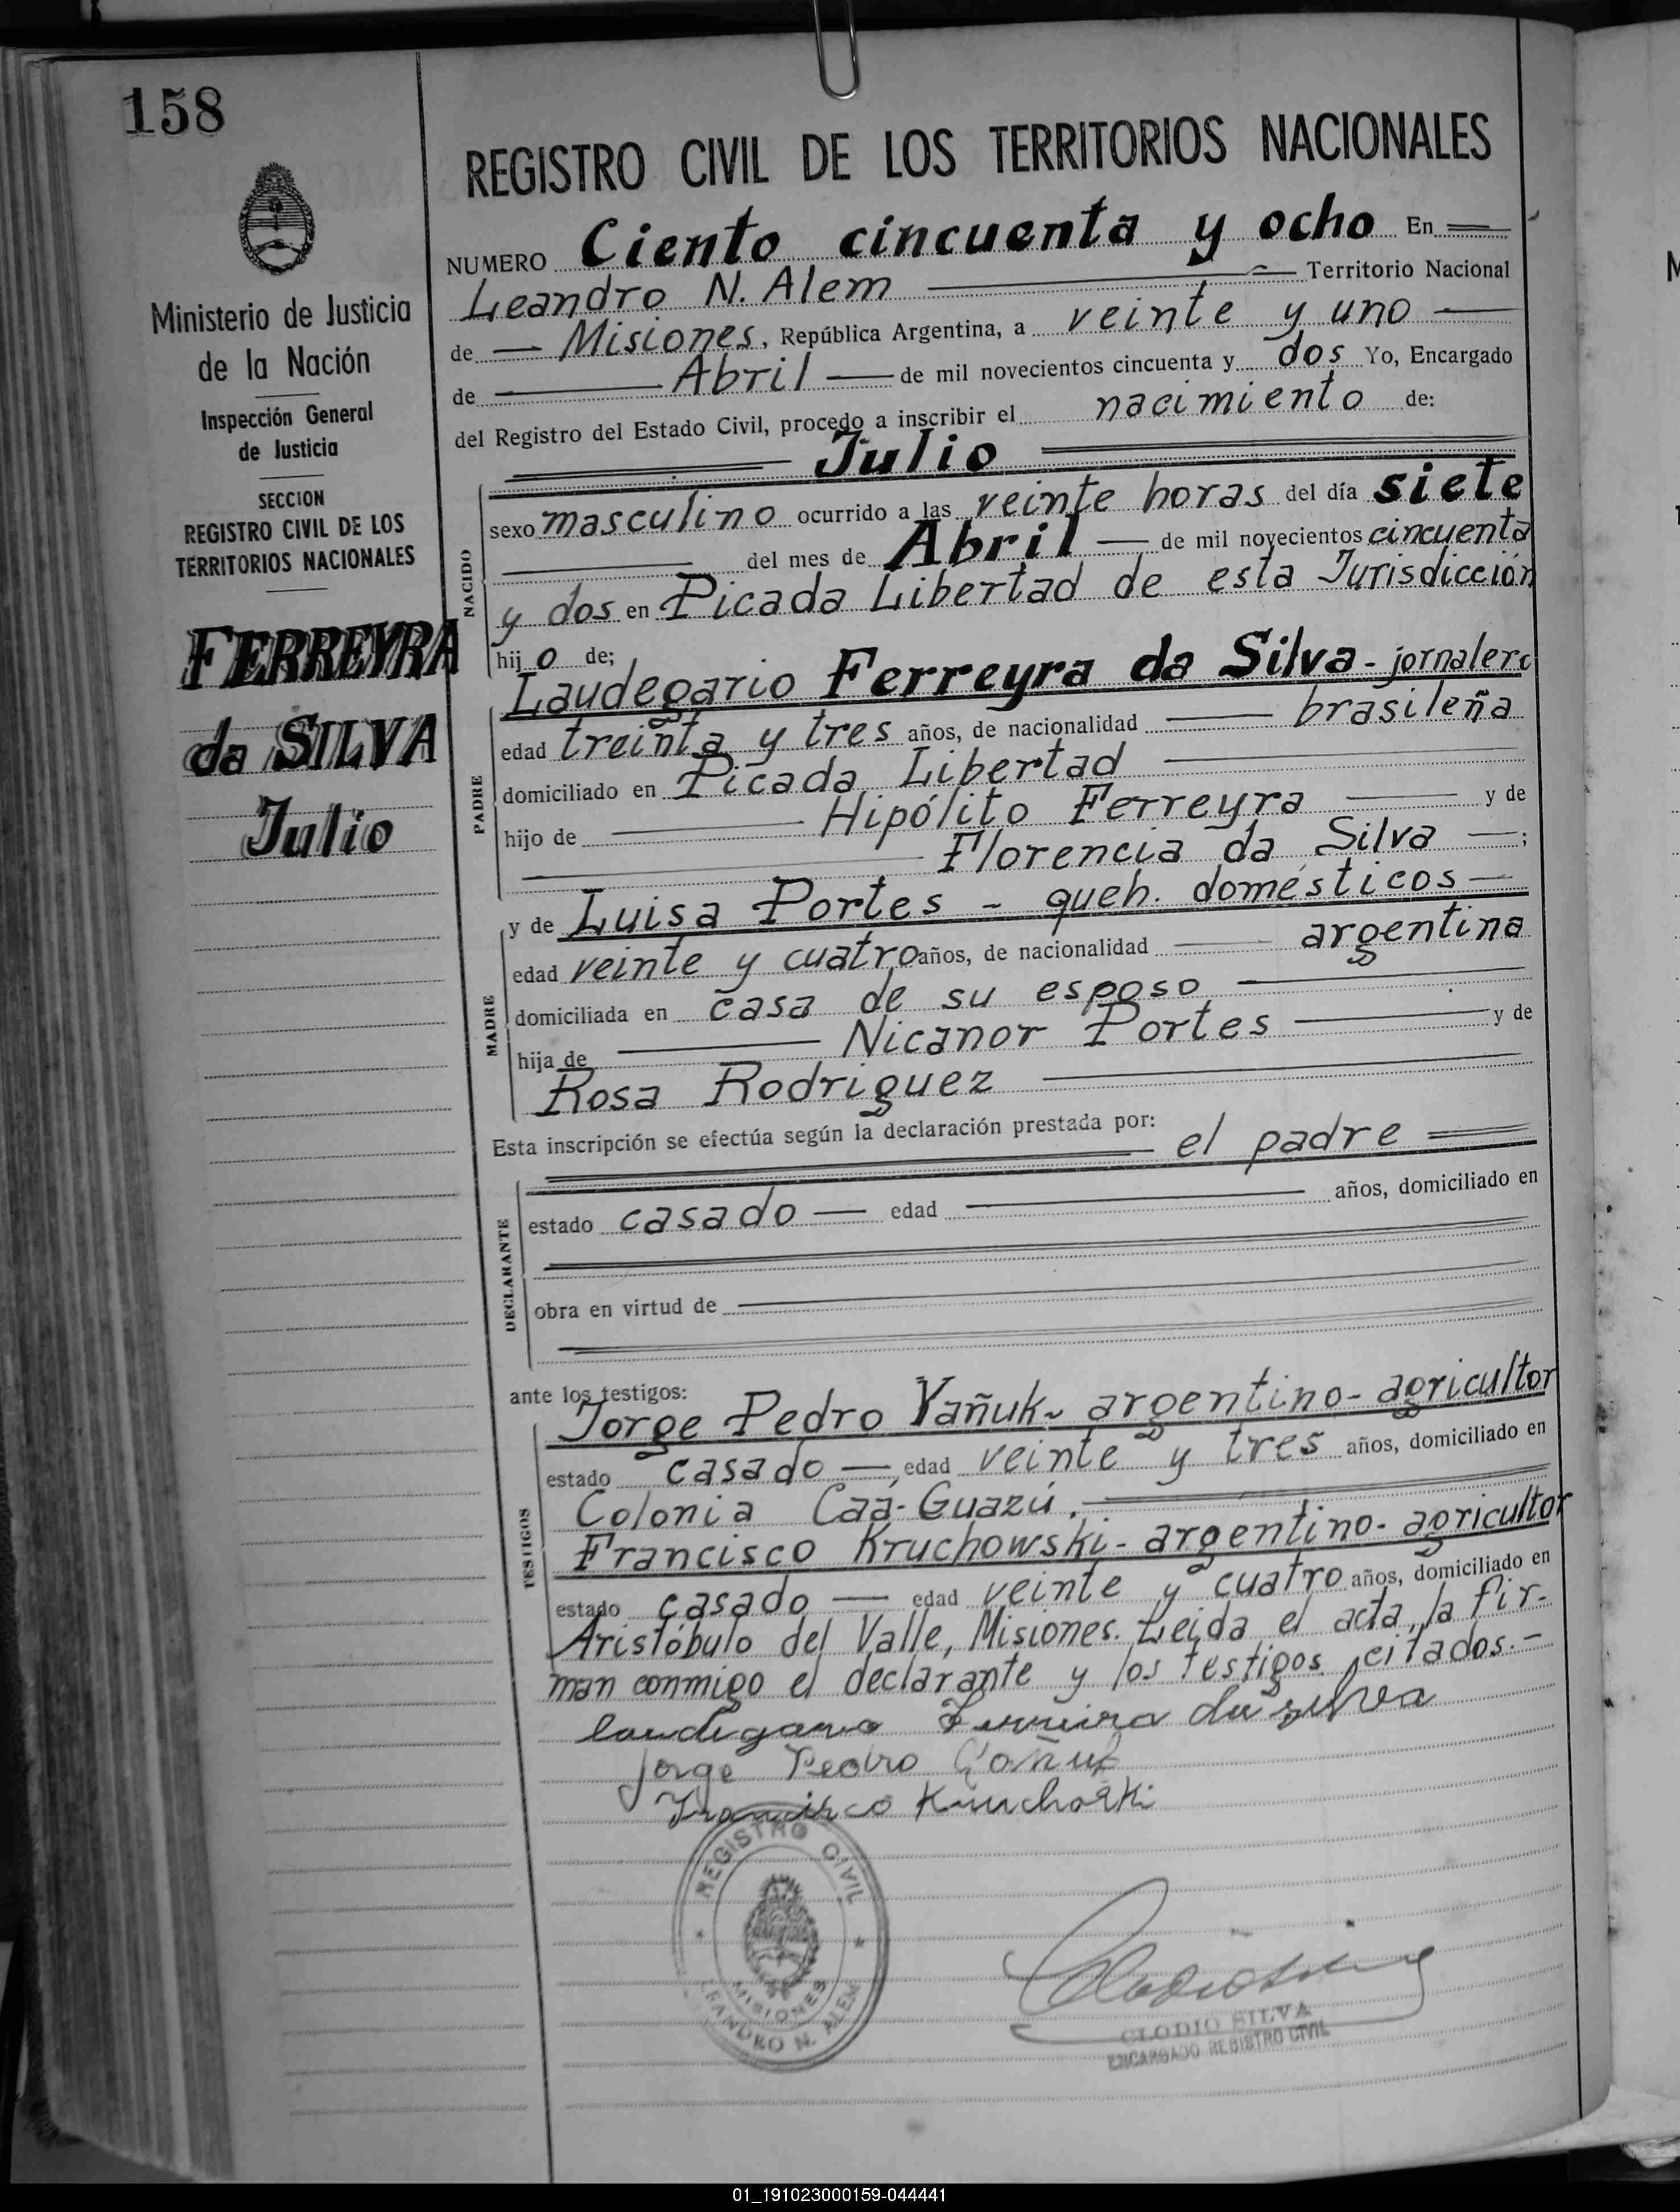 158
Ministerio de Justicia
de la Nación
Inspección General
de Justicia
SECCION
REGISTRO CIVIL DE LOS
TERRITORIOS NACIONALES
FERREYRA
da SILVA
Julio
REGISTRO CIVIL DE LOS TERRITORIOS NACIONALES
NUMERO Ciento cincuenta y ocho En
Leandro N. Alem Territorio Nacional
de Misiones, República Argentina, a veinte y uno
de Abril de mil novecientos cincuenta y dos Yo, Encargado
del Registro del Estado Civil, procedo a inscribir el nacimiento de:
Julio
NACIDO
sexo masculino ocurrido a las veinte horas del día siete
del mes de Abril de mil novecientos cincuenta
y dos en Picada Libertad de esta Jurisdicción
hijo de;
Laudegario Ferreyra da Silva - jornalero
PADRE
edad treinta y tres años, de nacionalidad brasileña
domiciliado en Picada Libertad
hijo de Hipólito Ferreyra y de
Florencia da Silva ;
y de Luisa Portes - queh. domésticos
MADRE
edad veinte y cuatro años, de nacionalidad argentina
domiciliada en casa de su esposo
hija de Nicanor Portes y de
Rosa Rodriguez
Esta inscripción se efectúa según la declaración prestada por:
el padre
DECLARANTE
estado casado edad años, domiciliado en
obra en virtud de
ante los testigos:
Jorge Pedro Yañuk - argentino - agricultor
TESTIGOS
estado casado, edad veinte y tres años, domiciliado en
Colonia Caá-Guazú.
Francisco Kruchowski - argentino - agricultor
estado casado edad veinte y cuatro años, domiciliado en
Aristóbulo del Valle, Misiones. Leida el acta, la fir-
man conmigo el declarante y los testigos citados.-
laudigario Ferreira da silva
Jorge Pedro Yañuk
Francisco Kruchoski
REGISTRO CIVIL
MISIONES
LEANDRO N. ALEM
CLODIO SILVA
ENCARGADO REGISTRO CIVIL
01_191023000159-044441